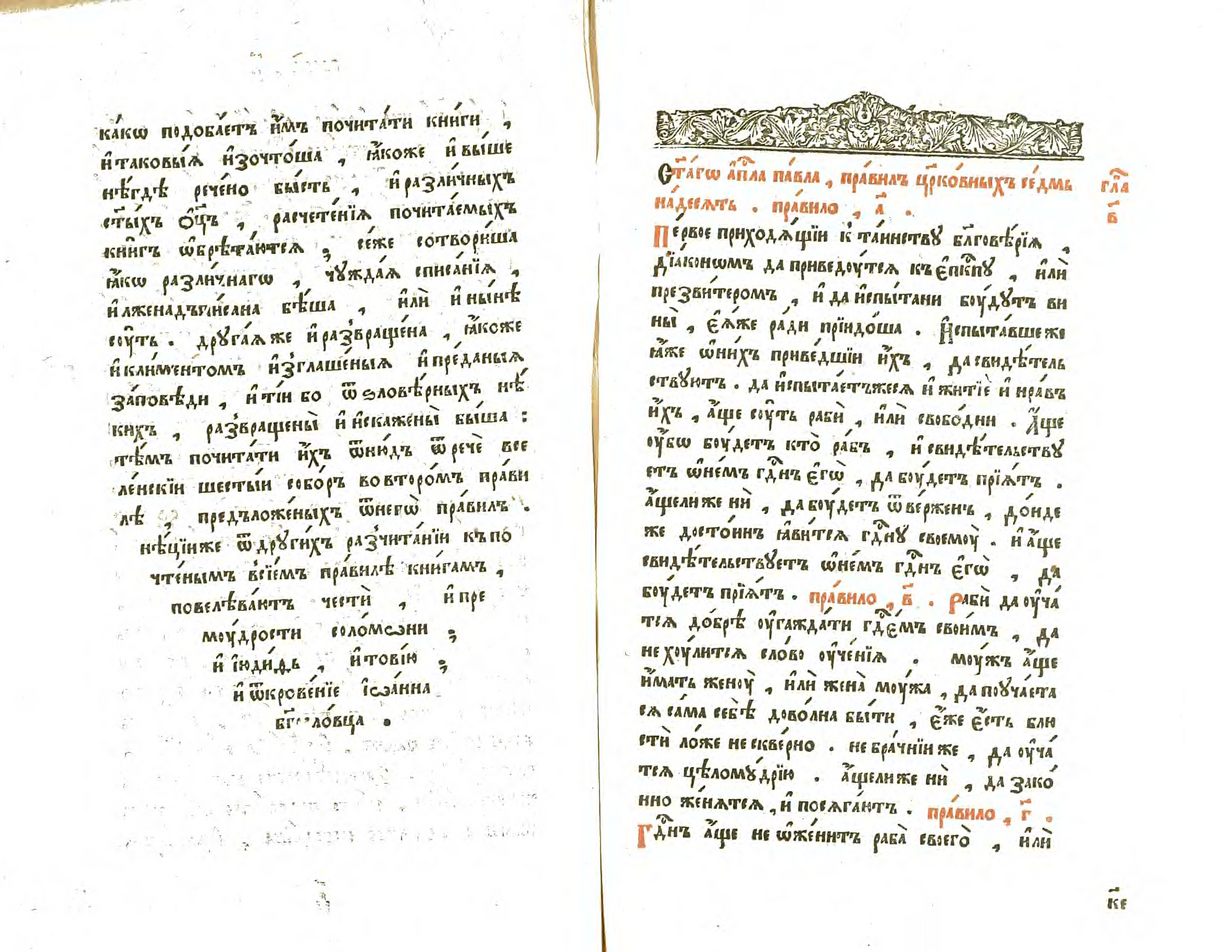 ка́кѡ подоба́етъ и҆̀мъ почита́ти кни́ги ,
и҆таковы́ѧ и҆зочто́ша , ꙗ҆́коже и҆вы́ше
нѣ́гдѣ рече́но бы́сть , и҆разли́чныхъ
ст҃ы́хъ ѻ҆ц҃ъ , расчете́нїѧ почита́емыхъ
кни́гъ ѡ҆брѣта́ютсѧ ; се́же сотвори́ша
ꙗ҆́кѡ разли́чнагѡ , чꙋжда́ѧ списа́нїѧ ,
и҆лженадъпи́сана бѣ́ша , и҆лѝ и҆ны́нѣ
сꙋ́ть . дрꙋга́ѧже и҆развраще́на , ꙗ҆́коже
и҆кли́ментомъ и҆зглаше́ныѧ и҆пре́даныѧ
за́повѣди , и҆ті́и бо ѿ ѕловѣ́рныхъ нѣ́
кихъ , развраще́ны и҆искаже́ны бы́ша :
тѣ́мъ почита́ти и҆́хъ ѿнꙋ́дъ ѿречѐ все
ле́нскїи шесты́и собо́ръ вовторо́мъ пра́ви
лѣ , предъложе́ныхъ ѿнегѡ̀ пра́вилъ .
нѣ́цїиже ѿдрꙋги́хъ разчита́нїи къпо
чте́нымъ всїе́мъ пра́вилѣ кни́гамъ ,
повелѣва́ютъ че́сти , и҆пре
моу́дрости соломѡ́ни ;
и҆ і҆ꙋди́ѳь , и҆тові́ю ;
и҆ ѿкрове́нїе і҆ѡа́нна
бг҃осло́вца .
Ст҃а́гѡ а҆пⷭ҇ла па́вла , пра́вилъ цр҃ко́вныхъ се́дмь
на́десѧть . пра́вило , а҃ .
гла
в҃
Пе́рвое приходѧ́щїи к та́инствꙋ блг҃овѣ́рїѧ ,
дїа́кономъ да приведоу́тсѧ къ є҆пⷭ҇кпꙋ , и҆лѝ
презви́теромъ , и҆ да и҆спы́тани боу́дꙋтъ ви
ны̀ , є҆ѧ́же ра́ди прїидо́ша . И҆спыта́вшеже
ꙗ҆́же ѡ҆ни́хъ приве́дшїи и҆́хъ , да свидѣ́тель
ствꙋютъ . да и҆спыта́етъжесѧ и҆ житїѐ и҆ нра́въ
и҆́хъ , а҆́ще сꙋ́ть рабѝ , и҆лѝ свобо́дни . А҆́ще
оу҆́бѡ боу́детъ кто̀ ра́бъ , и҆ свидѣ́тельствꙋ
етъ ѡ҆не́мъ гдⷭ҇нъ є҆гѡ̀ , да боу́детъ прїѧ́тъ .
а҆́щелиже нѝ , да боу́детъ ѿве́рженъ , до́нде
же досто́инъ ꙗ҆ви́тсѧ гдⷭ҇нꙋ своемоу̀ . и҆ а҆́ще
свидѣ́тельствꙋетъ ѡ҆не́мъ гдⷭ҇нъ є҆гѡ̀ , да
боу́детъ прїѧ́тъ . пра́вило , в҃ . Рабѝ да оу҆ча́
тсѧ до́брѣ оу҆гажда́ти гдⷭ҇емъ свои́мъ , да
не хоу́литсѧ сло́во оу҆че́нїѧ . моу́жъ а҆́ще
и҆́мать женоу̀ , и҆лѝ женà моу́жа , да поуча́ета
сѧ сама̀ себѣ̀ дово́лна бы́ти , є҆́же є҆́сть блю
стѝ ло́же нескве́рно . не бра́чнїиже , да оу҆ча́
тсѧ цѣломꙋ́дрїю . а҆́щелиже нѝ , да зако́
нно же́нѧтсѧ , и҆ посѧга́ютъ . пра́вило , г҃ .
Гдⷭ҇нъ а҆́ще не ѡ҆же́нитъ раба̀ своего̀ , и҆лѝ
к҃е